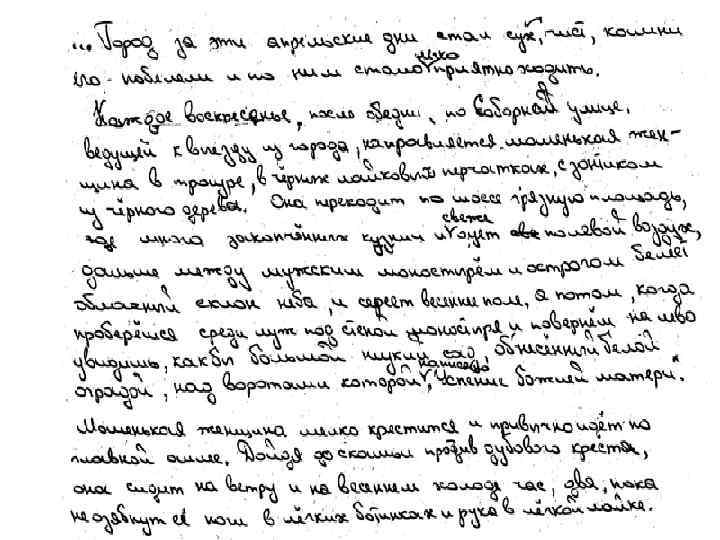 ... Город за эти апрельские дни стал сух, чист, камни
его побелели и по ним стало легко приятно ходить.
Каждое воскресенье, после обедни, по Соборной улице,
ведущей к выезду из города, направляется маленькая жен-
щина в трауре, в чёрных лайковых перчатках, с зонтиком
из чёрного дерева. Она преходит по шоссе грязную площадь,
где много закопчённых кузниц и свежо дует полевой воздух,
дальше между мужским монастырём и острогом белеет
облачный склон неба, и сереет весенние поле, а потом, когда
проберёшся среди луж под стеной монастыря и повернём на лево
увидишь, как бы большой низкий сад, обнесённый белой
оградой, над воротами которой написано, "Успение божией матери".
Маленькая женщина мелко крестится и привычно идёт по
главной аллее. Дойдя до скамьи против дубового креста,
она сидит на ветру и на весеннем холоде час, два, пока
не озябнут её ноги в лёгких ботинках и рука в лёгкой лайке.